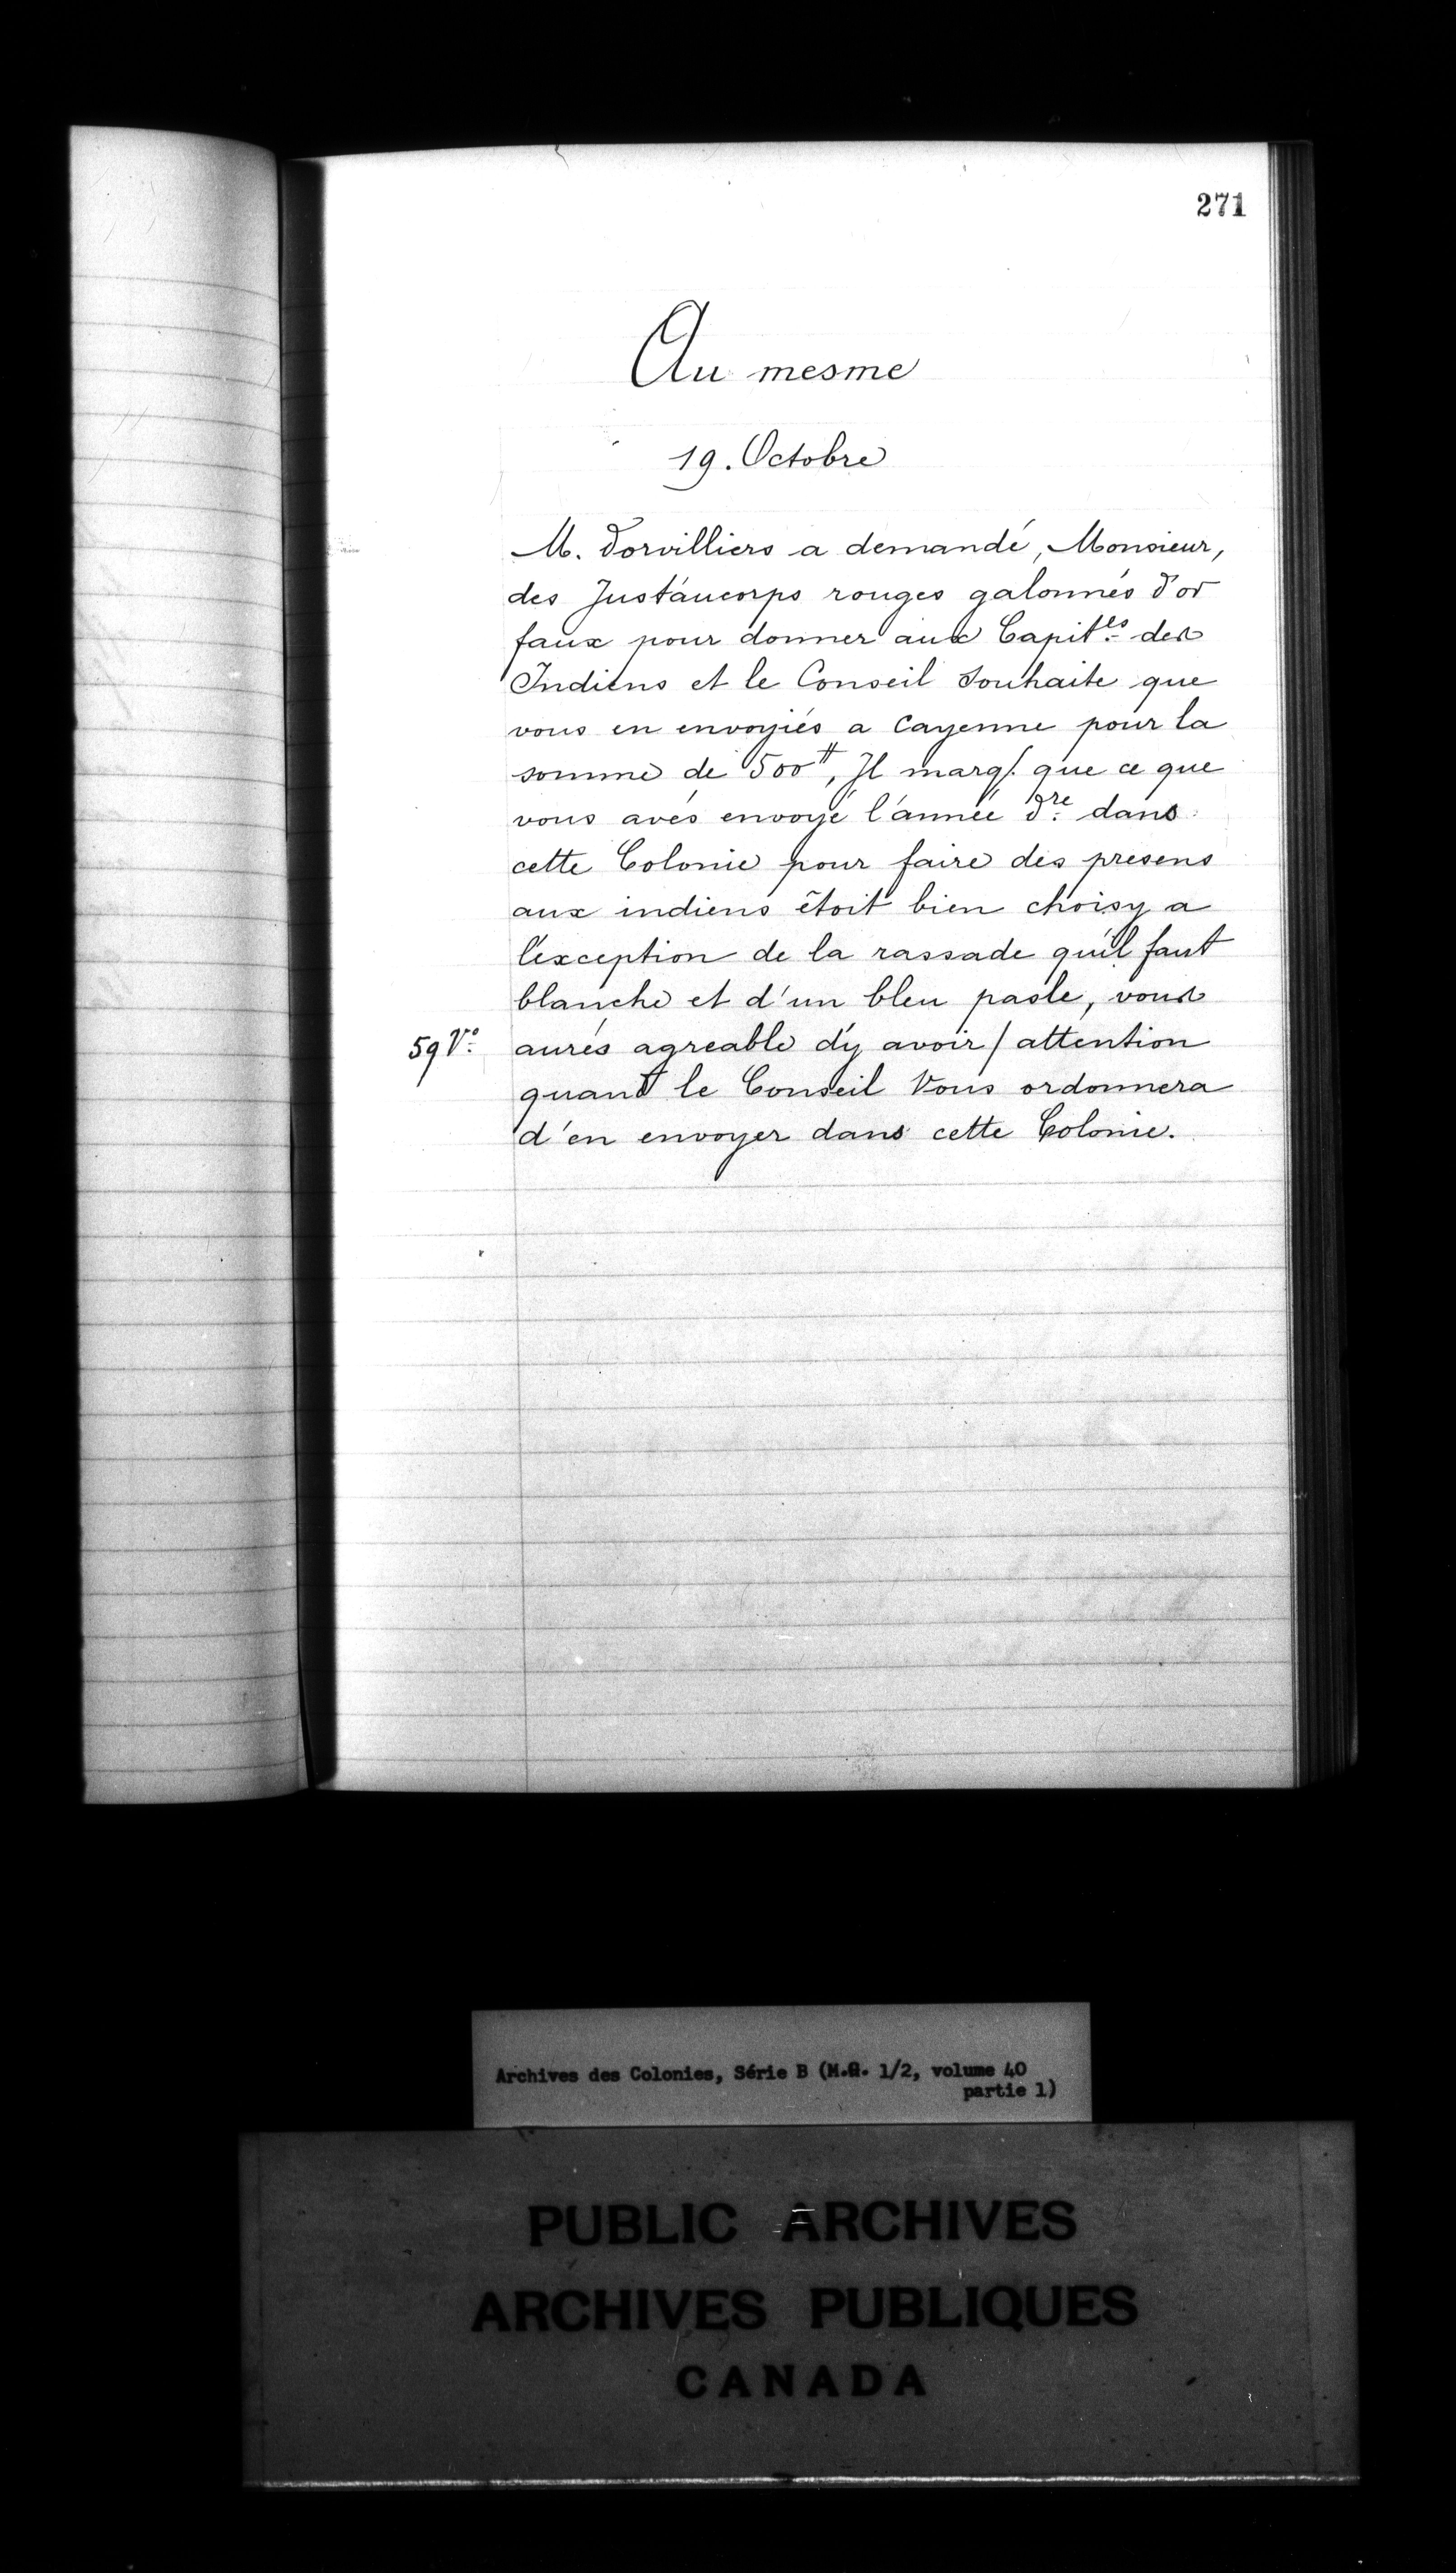 271
Au mesme
19. Octobre
M. dorvilliers a demandé, Monsieur,
des Just'aucorps rouges galonnés d'or
faux pour donner aux Capit.es des
Indiens et le Conseil souhaite que
vous en envoyiés a Cayenne pour la
somme de 500#, Il marq/. que ce que
vous avés envoyé l'année d.re dans
cette Colonie pour faire des presens
aux indiens étoit bien choisy a
l'exception de la rassade qu'il faut
blanche et d'un bleu pasle, vous
59 Vo. aurés agreable d'y avoir / attention
quand le Conseil Vous ordonnera
d'en envoyer dans cette Colonie.
Archives des Colonies, Série B (M.G. 1/2, volume 40
partie 1)
PUBLIC ARCHIVES
ARCHIVES PUBLIQUES
CANADA